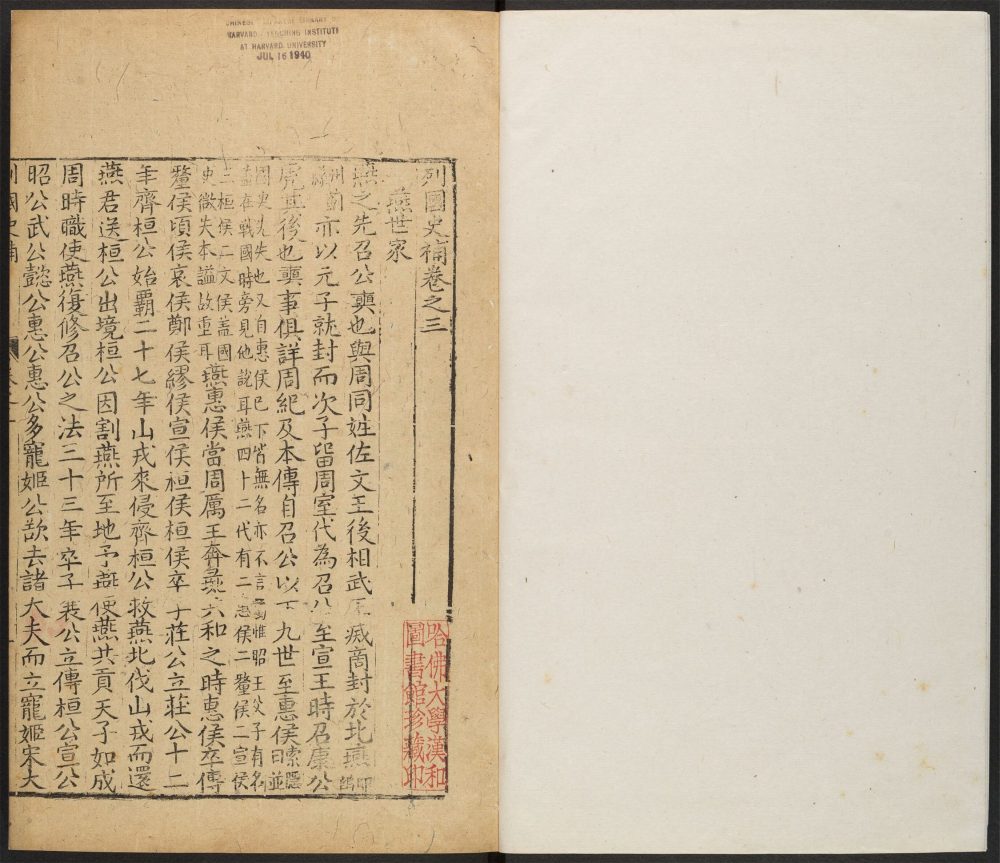 HARVARD
INSTITUTE
AT HARVARD UNIVERSITY
JUL 16 1940
列國史補卷之三
燕世家
燕之先召公奭也與周同姓佐文王後相武王滅商封於北燕
亦以元子就封而次子留周室代為召公至宣王時召康公
虎其後也奭事俱詳周紀及本傳自召公以下九世至惠侯索隱曰並
國史失也又自惠侯已下皆無名亦不言屬惟昭王父子有名
蓋在戰國時旁見他說耳燕四十二代有二惠侯二釐侯二宣侯
三桓侯二文侯蓋國
史微失本謚故重耳
燕惠侯當周厲王奔彘共和之時惠侯卒傳
釐侯頃侯哀侯鄭侯繆侯宣侯桓侯桓侯卒子莊公立莊公十二
年齊桓公始霸二十七年山戎來侵齊桓公救燕北伐山戎而還
燕君送桓公出境桓公因割燕所至地予燕使燕共貢天子如成
周時職使燕復修召公之法三十三年卒子襄公立傳桓公宣公
昭公武公懿公惠公惠公多寵姬公欲去諸大夫而立寵姬宋大
哈佛大學漢和
圖書館珍藏印